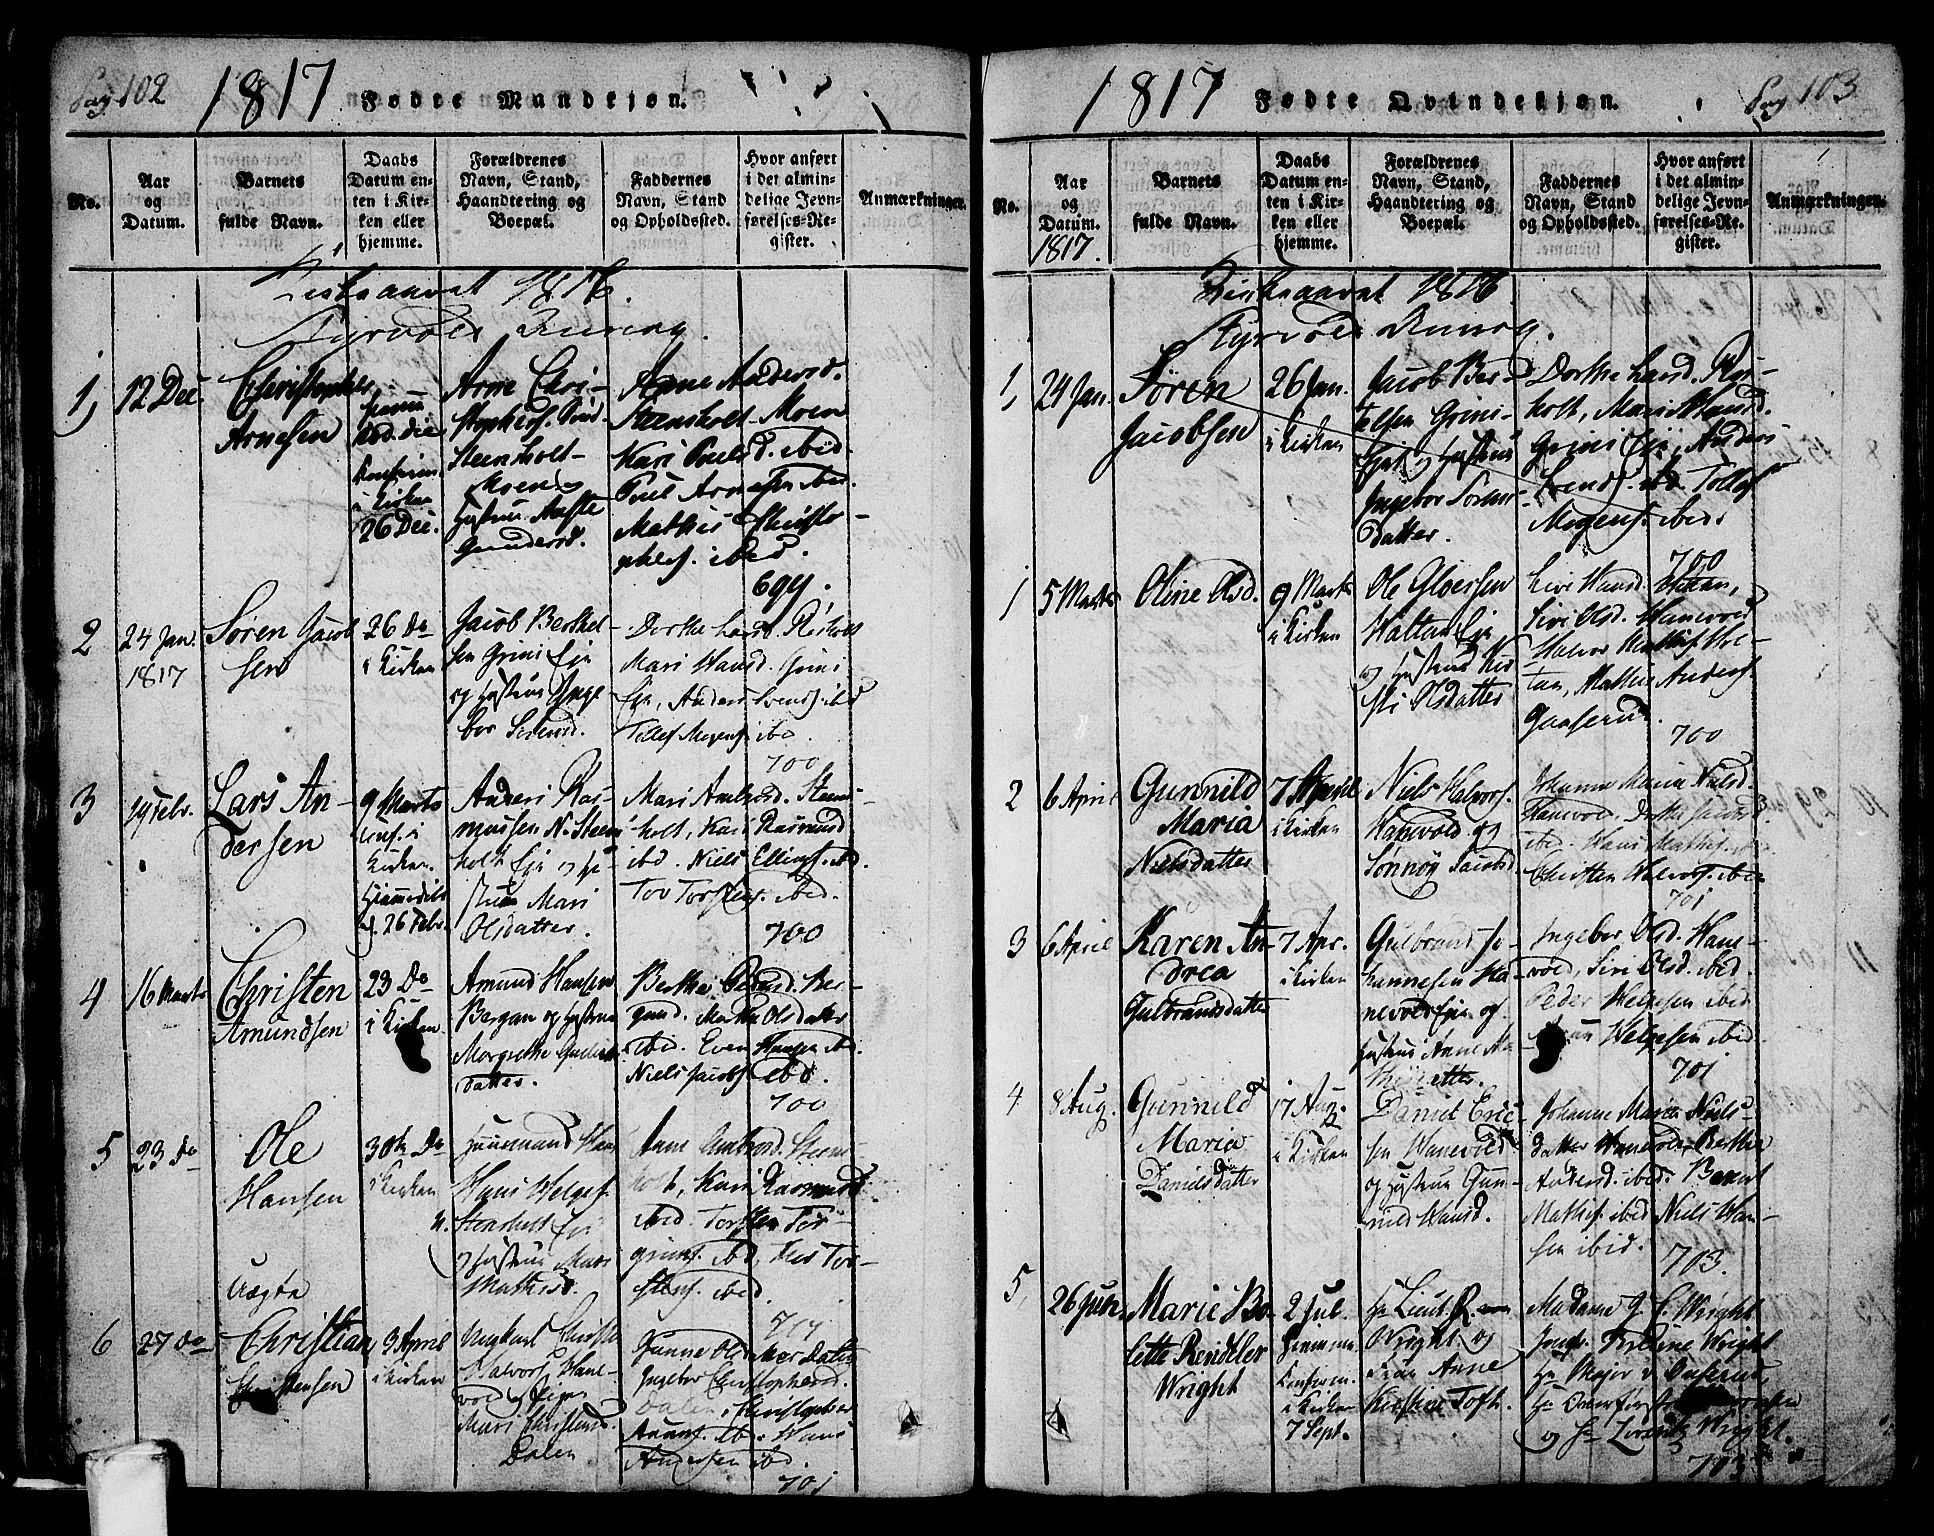 Pag 102
1817
Fødte Mandkjøn.
No.
Aar
og
Datum.
Barnets
fulde Navn.
Daabs
Datum en-
ten i Kir-
ken eller
hjemme.
Forældrenes
Navn, Stand,
Haandtering og
Boepæl.
Faddernes
Navn, Stand
og Opholdssted.
Hvor anført
i det almin-
delige Jevn-
førelses-Re-
gister.
Anmærkninger.
Kirkeaaret 1816.
1,
12 Dec.
Christopher
Arnesen
i Kirken
26 Dec.
Arne Chri-
Steensholt-
Moen
Gundersd.
Anne Andersd.
Steensholt-Moen
Kari Poulsd. ibid.
Poul Arnesen ibid.
Mathis Christo-
phers. ibid.
699.
2
24 Jan.
1817
Søren Jacob
sen
26 Do
i Kirken
Jacob Berthel
sen Grini Eje
og Hustrue Inge
bor
Dorthe Larsd. Røsholt
Mari Hansd. Grini
Eje, Anders Svends. ibid
Tollef Mogens. ibid.
700
3
19 Febr.
Lars An-
dersen
9 Marts
Conf. i
Kirken.
Hjemmedøbt
d. 26 Febr.
Anders Ras-
mussen N. Steens
holt Eje og Hu-
strue Mari
Olsdatter.
holt, Kari Rasmusd
ibd. Niels Ellings. ibd.
Tov Torstens. ibid.
700
4
16 Marts
Christen
Amundsen
23 Do
i Kirken
Amund Hansen
Bergan og Hustrue
Margrethe
datter.
Olsdatter
ibid. Even Hansen ibd.
Niels Jacobs. ibd.
700
5
23 do
Ole
Hansen
Uægta
30te Do
i Kirken
Huusmand Hans
Hans Helges.
N. Steensholt Eje
og Hustrue Mari
Mathisd.
Anne Amundsd. Steens-
holt, Kari Rasmusd.
ibid. Torsten Tor-
grims. ibd,
stens. ibid.
701
6
27 do
Christian
Christensen
3 April
i Kirken
Ungkarl Christen
Halvors. Hane-
vold og Pigen
Mari
Dalen
Gunne Olsd
Ingebor Christophersd.
Dalen, Christopher
ibd. Hans
Andersen ibd.
701
Pag 103
1817
Fødte Qvindekjøn.
No.
Aar
og
Datum.
1817.
Barnets
fulde Navn.
Daabs
Datum en-
ten i Kir-
ken eller
hjemme.
Forældrenes
Navn, Stand,
Haandtering og
Boepæl.
Faddernes
Navn, Stand
og Opholdssted.
Hvor anført
i det almin-
delige Jevn-
førelses-Re-
gister.
Anmærkningen.
Kirkeaaret 1816.
1,
24 Jan.
Søren
Jacobsen
26 Jan.
i Kirken
Jacob Ber-
telsen Grini-
Eje og Hustrue
Ingebor Sørens-
datter.
Dorthe Larsd. Røs-
holt, Mari Hansd.
Grini Eje, Anders
Svends. ibd. Tollef
Mogens. ibid.
700
1
5 Marts
Oline Olsd.
9 Marts
i Kirken
Ole Gloersen
Holtan Eje
og Hustrue Kir
sti Olsdatter
Live Hansd. Holtan,
Siri Olsd. Hanevold
Halvor Mathis. Hol-
tan, Mathis Anders.
Gaaserud.
700
2
6 April
Gunnild
Maria
Nielsdatter
7 April
i Kirken
Niels Halvors.
Hanevold og
Sønnøg Jacobsd.
Johanne Maria Nielsd
Hanevold. Dorthe Jacobsd.
ibid. Hans Mathis.
Christen Halvors. ibid
701
3
6 April
Karen An-
drea
Gulbrandsdatter
7 Apr.
i Kirken
Gulbrand Jo-
hannesen Ha-
nevold Eje og
Hustrue Anne Ma-
Ingebor Olsd. Hane-
vold, Siri Olsd. ibid.
Peder Helgesen ibid
Helgesen ibid.
701
4
8 Aug.
Gunnild
Maria
Danielsdatter
17 Aug.
i Kirken
Daniel Eric-
sen Hanevold
og Hustrue Gun-
nild Hansd.
Johanne Maria Niels-
datter Hanevold, Berthe
Andersd. ibid. Bernt
Mathis. ibid Niels Han-
sen ibid.
703.
5,
26 Juni
Marie Bo-
lette Rendeler
Wright
2 Jul.
Hjemme
Konferm.
i Kirken
7 Sept.
Hr Lieut. R.
Wright og
Frue Anne
Kirstine Toft.
Madame G. C. Wright
Jomf. Wright
Hr Major v.
og Hr Lorentz Wright.
703